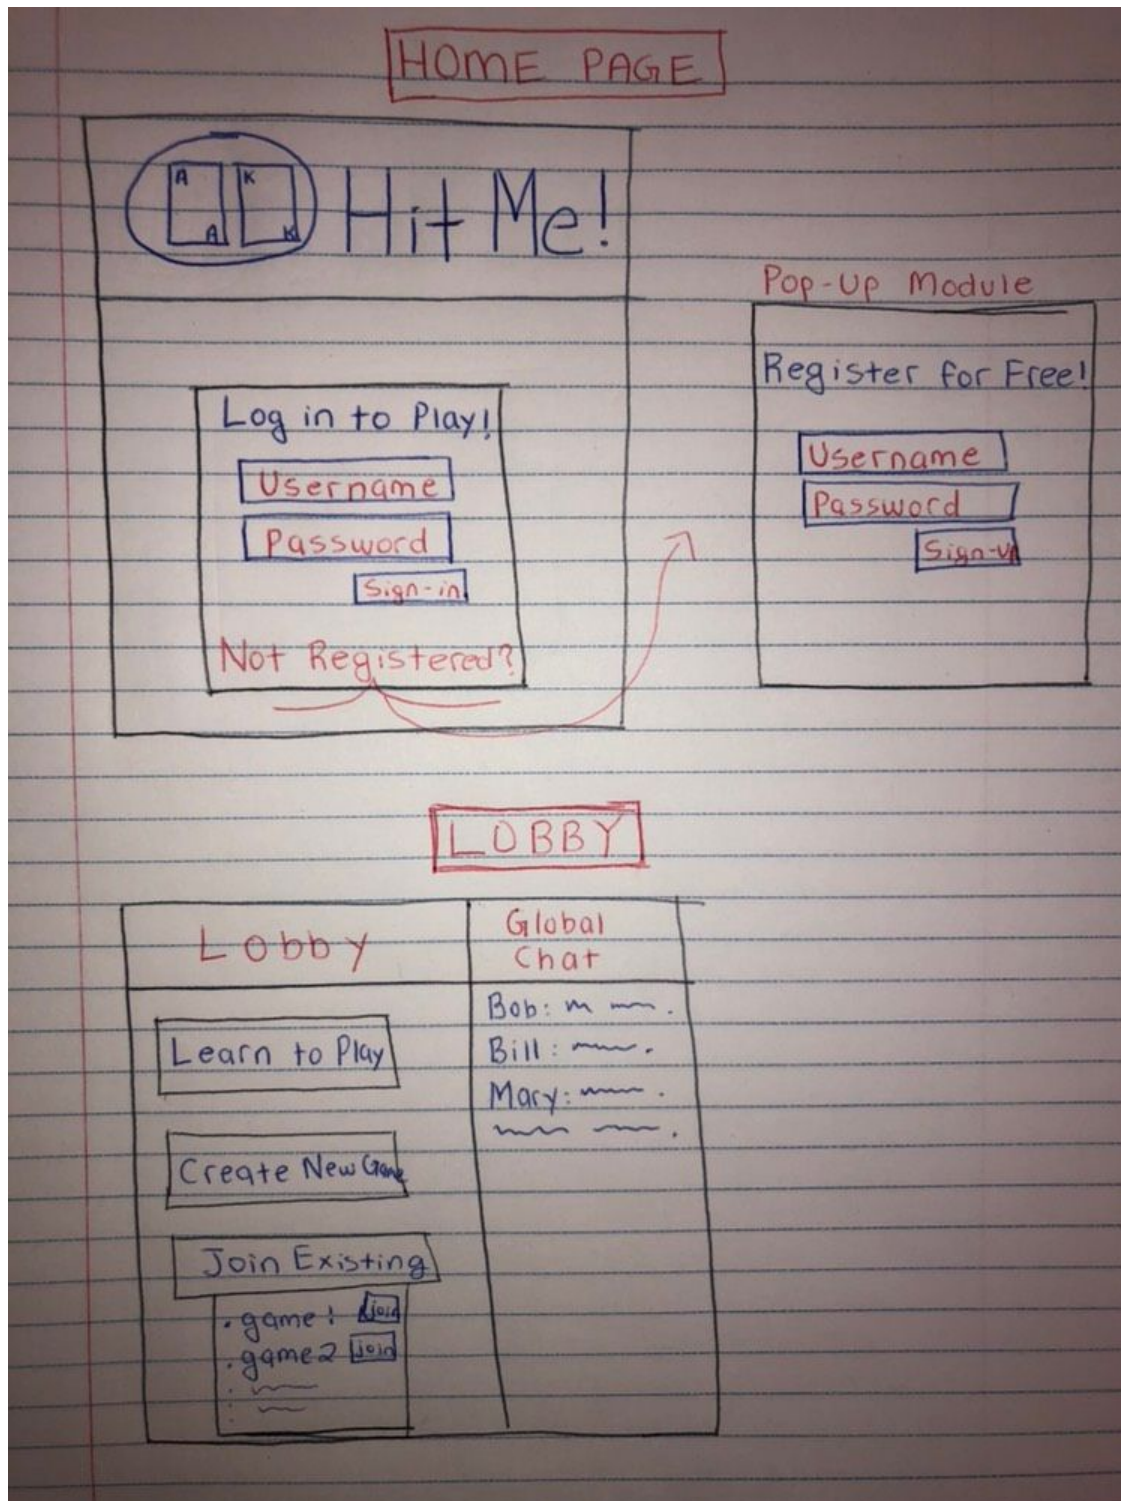 HOME PAGE
A K
A K
Hit Me!
Log in to Play!
Username
Password
Sign-in
Not Registered?
Pop-Up Module
Register for Free!
Username
Password
Sign-up
LOBBY
Lobby
Learn to Play
Create New Game
Join Existing
. game 1 join
. game 2 join
Global
Chat
Bob:
Bill:
Mary: